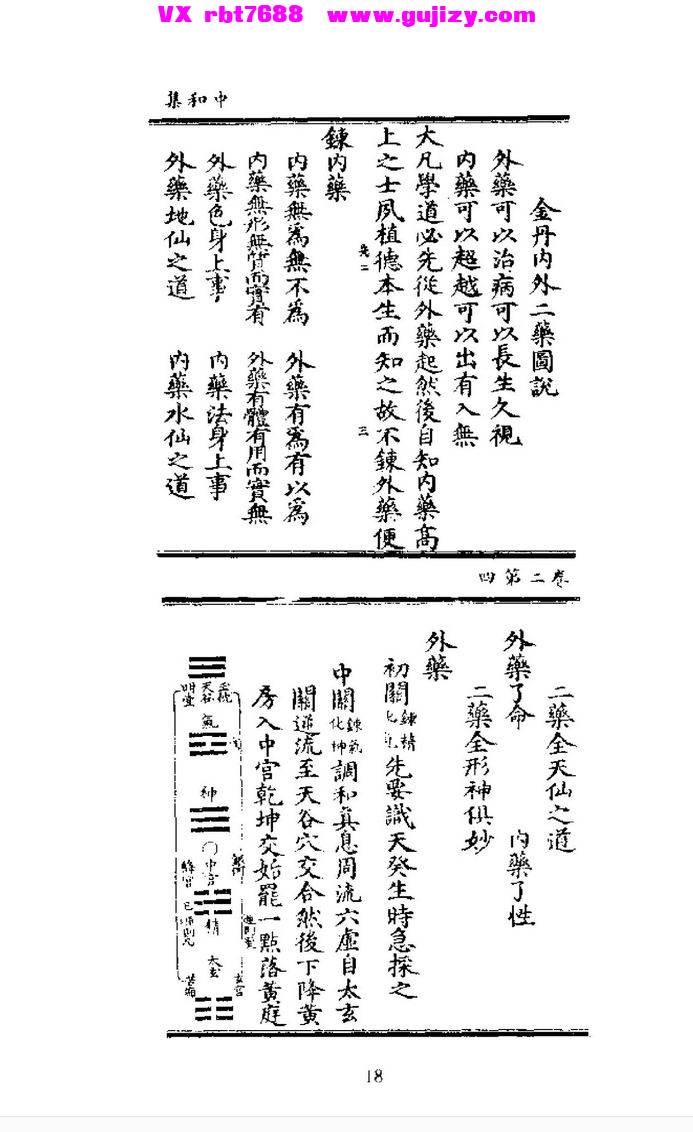 VX rbt7688 www.gujizy.com
中和集
金丹内外二藥圖說
外藥可以治病可以長生久視
内藥可以超越可以出有入無
大凡學道必先從外藥起然後自知内藥高
上之士夙植德本生而知之故不鍊外藥便
先二 三
鍊内藥
内藥無爲無不爲 外藥有爲有以爲
内藥無形無質而實有 外藥有體有用而實無
外藥色身上事 内藥法身上事
外藥地仙之道 内藥水仙之道
卷二第四
二藥全天仙之道
外藥了命 内藥了性
二藥全形神俱妙
外藥
初關鍊精先要識天癸生時急採之
中關鍊氣化神調和真息周流六虛自太玄
關逆流至天谷穴交合然後下降黃
房入中宮乾坤交姤罷一點落黃庭
天谷
明堂
氣
神
中宮
絳宮
精
太玄
玄宮
18